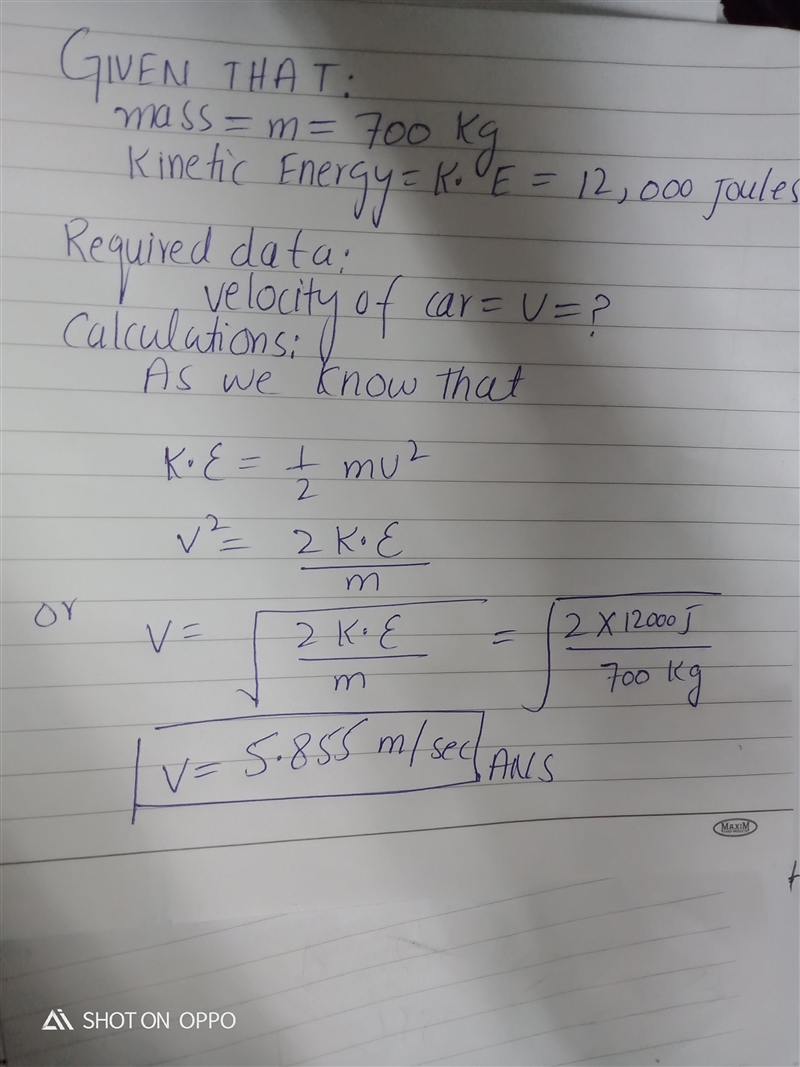 GIVEN THAT:
mass = m = 700 Kg
Kinetic Energy = K. E = 12,000 Joules
Required data:
velocity of car = V = ?
Calculations:
As we know that
K.E = 1/2 mv²
V² = 2 K.E / m
or V = √(2 K.E / m) = √(2 X 12000 J / 700 Kg)
V = 5.855 m/sec ANS
MAXIM
SHOT ON OPPO